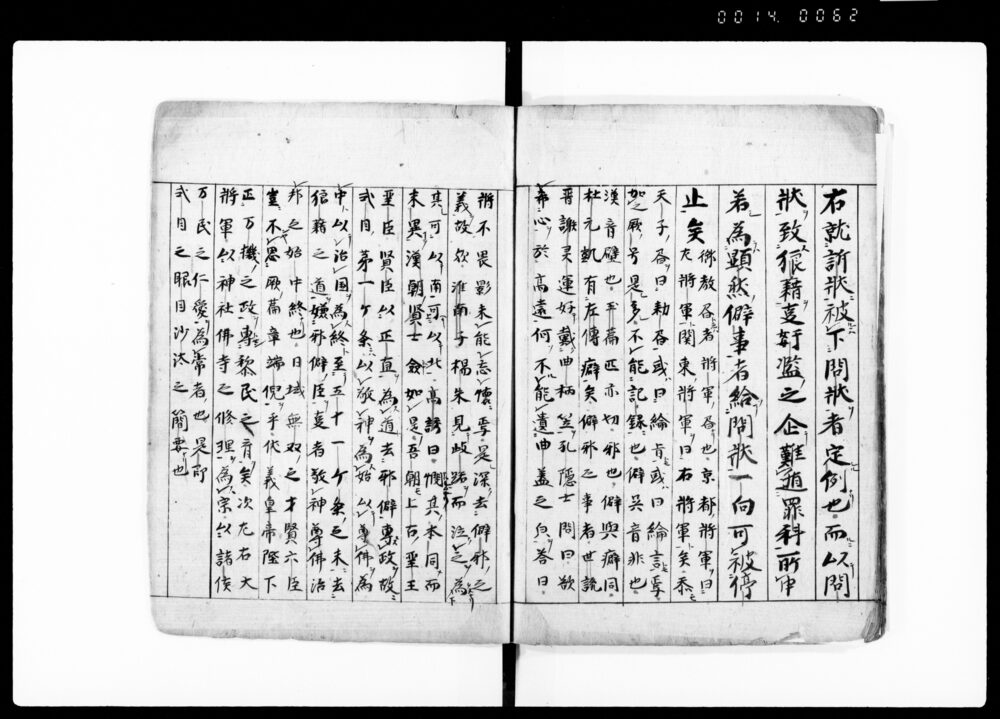 0014.0062
右就訴状被下問状者定例也而以問
状致狼藉事姧濫之企難遁罪科所申
若為顕然僻事者給問状一向可被停
止矣 御教召者将軍召也京都将軍曰
左将軍関東将軍曰右将軍矣忝
天子召曰勅召或曰綸旨或曰綸言等
加之厥号是多不能記録也僻吴音非也
漢音璧也平萬匹亦切邪也僻與癖同
杜元凱有左傳癖矣僻邪之事者世説
晋謝灵運好戴曲柄笠孔隠士問曰欲
希心於高遠何不能遺曲盖之自答曰
將不畏影未能忘懐乎是深去僻邪之
義故欤淮南子楊朱見岐路而泣之為
其可以南可以北高誘曰憫其本同而
末異漢朝賢士僉如是吾朝上古聖王
聖臣賢臣以正直為道去邪僻専政故
式目第一ケ条以敬神為始以尊佛為
中以治国為終至五十一ケ条之末去
狼藉之道嫌邪僻臣意者敬神尊佛治
邦之始中終也日域無双之才賢六臣
豈不思厥篇章端倪乎伏義皇帝陛下
正万機之政専黎民之育矣次左右大
將軍以神社佛寺之修理為宗以諸侯
万民之仁愛為常者也是即
式目之眼目沙汰之簡要也